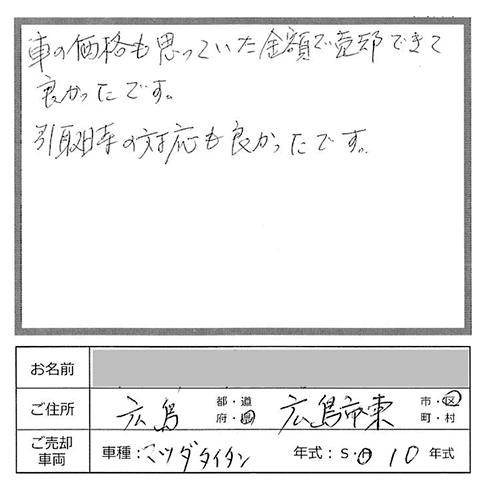 車の価格も思っていた金額で売却できて
良かったです。
引取時の対応も良かったです。
お名前
ご住所 広島 都・道府・県 広島市東 市・区町・村
ご売却車両 車種：マツダタイタン 年式：S・H 10 年式